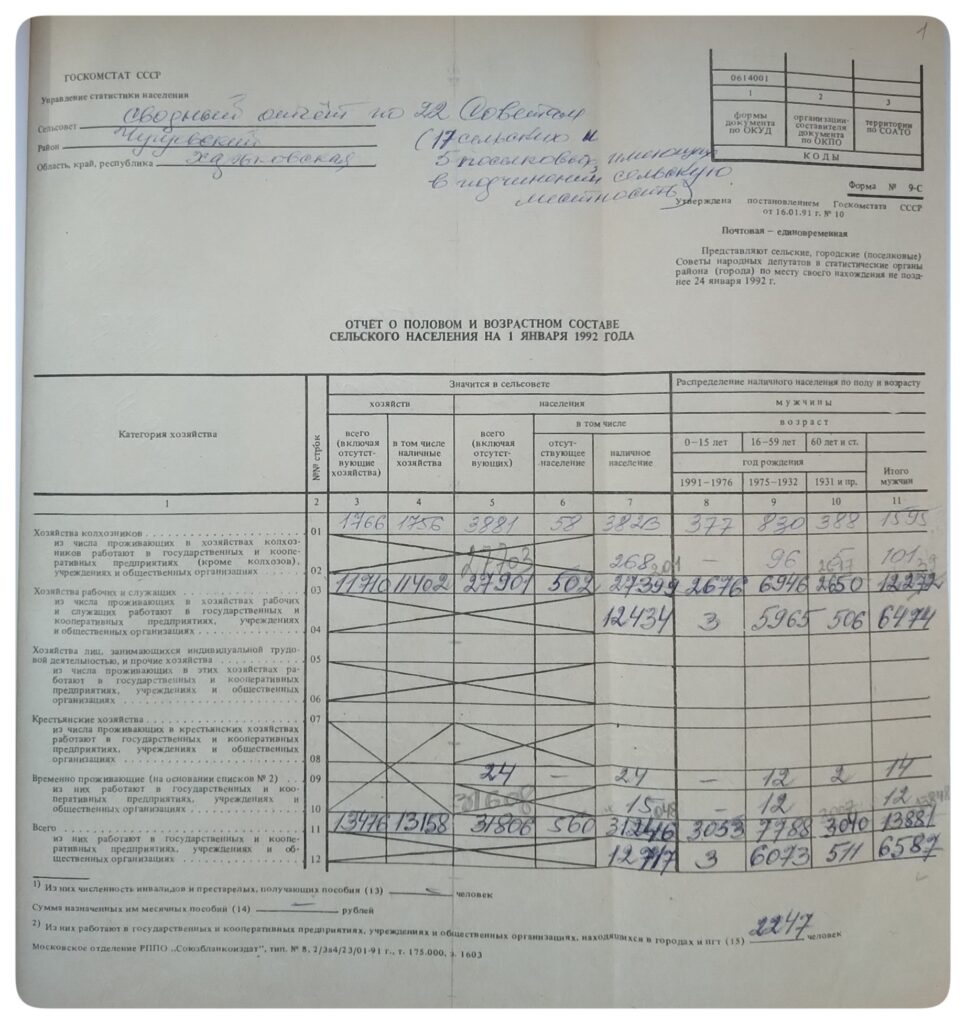 1
ГОСКОМСТАТ СССР
Управление статистики населения
Сельсовет сводный отчёт по 22 Советам
Район Чугуевский (17 сельских и
Область, край, республика Харьковская 5 поселковых, имеющих
в подчинении сельскую
местность)
0614001
1 2 3
формы документа по ОКУД
организации-составителя документа по ОКПО
территории по СОАТО
КОДЫ
Форма № 9-С
Утверждена постановлением Госкомстата СССР
от 16.01.91 г. № 10
Почтовая — единовременная
Представляют сельские, городские (поселковые)
Советы народных депутатов в статистические органы
района (города) по месту своего нахождения не позд-
нее 24 января 1992 г.
ОТЧЁТ О ПОЛОВОМ И ВОЗРАСТНОМ СОСТАВЕ
СЕЛЬСКОГО НАСЕЛЕНИЯ НА 1 ЯНВАРЯ 1992 ГОДА
Категория хозяйства
№№ строк
Значится в сельсовете
Распределение наличного населения по полу и возрасту
хозяйств
населения
мужчины
всего (включая отсутст-вующие хозяйства)
в том числе наличные хозяйства
всего (включая отсутст-вующих)
в том числе
отсут-ствующее население
наличное население
возраст
0—15 лет 16—59 лет 60 лет и ст.
год рождения
1991—1976 1975—1932 1931 и пр.
Итого мужчин
1 2 3 4 5 6 7 8 9 10 11
Хозяйства колхозников 01 1766 1756 3881 58 3823 377 830 388 1595
из числа проживающих в хозяйствах колхоз-
ников работают в государственных и коопе-
ративных предприятиях (кроме колхозов),
учреждениях и общественных организациях 02 268 — 96 101
27703
Хозяйства рабочих и служащих 03 11710 11402 27901 502 27399 2676 6946 2650 12272
из числа проживающих в хозяйствах рабочих
и служащих работают в государственных и
кооперативных предприятиях, учреждениях
и общественных организациях 04 12434 3 5965 506 6474
Хозяйства лиц, занимающихся индивидуальной трудо-
вой деятельностью, и прочие хозяйства 05
из числа проживающих в этих хозяйствах ра-
ботают в государственных и кооперативных
предприятиях, учреждениях и общественных
организациях 06
Крестьянские хозяйства 07
из числа проживающих в крестьянских хозяйствах
работают в государственных и кооперативных
предприятиях, учреждениях и общественных
организациях 08
Временно проживающие (на основании списков № 2) 09 24 — 24 — 12 2 14
из них работают в государственных и коо-
перативных предприятиях, учреждениях и
общественных организациях 10 15 — 12 12
31608
Всего 11 13476 13158 31806 560 31246 3053 7788 3040 13881
из них работают в государственных и коопе-
ративных предприятиях, учреждениях и об-
щественных организациях 12 12717 3 6073 511 6587
1) Из них численность инвалидов и престарелых, получающих пособия (13) — человек
Сумма назначенных им месячных пособий (14) — рублей
2) Из них работают в государственных и кооперативных предприятиях, учреждениях и общественных организациях, находящихся в городах и пгт (15) 2247 человек
Московское отделение РППО „Союзбланкоиздат", тип. № 8, 2/3а4/23/01-91 г., т. 175.000, з. 1603